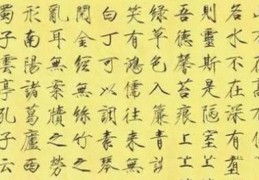 名水不在深有龍
則靈斯是陋室惟
吾德馨苔痕上
綠草色入簾青談
笑有鴻儒往來無
白丁可以調素琴
閱金經無絲竹之
亂耳無案牘之勞
形南陽諸葛廬西
蜀子雲亭孔子云